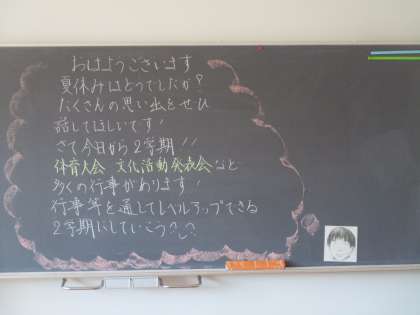 おはようございます
夏休みはどうでしたか？
たくさんの思い出をぜひ
話してほしいです！
さて今日から2学期!!
体育大会 文化活動発表会など
多くの行事があります！
行事等を通してレベルアップできる
2学期にしていこう